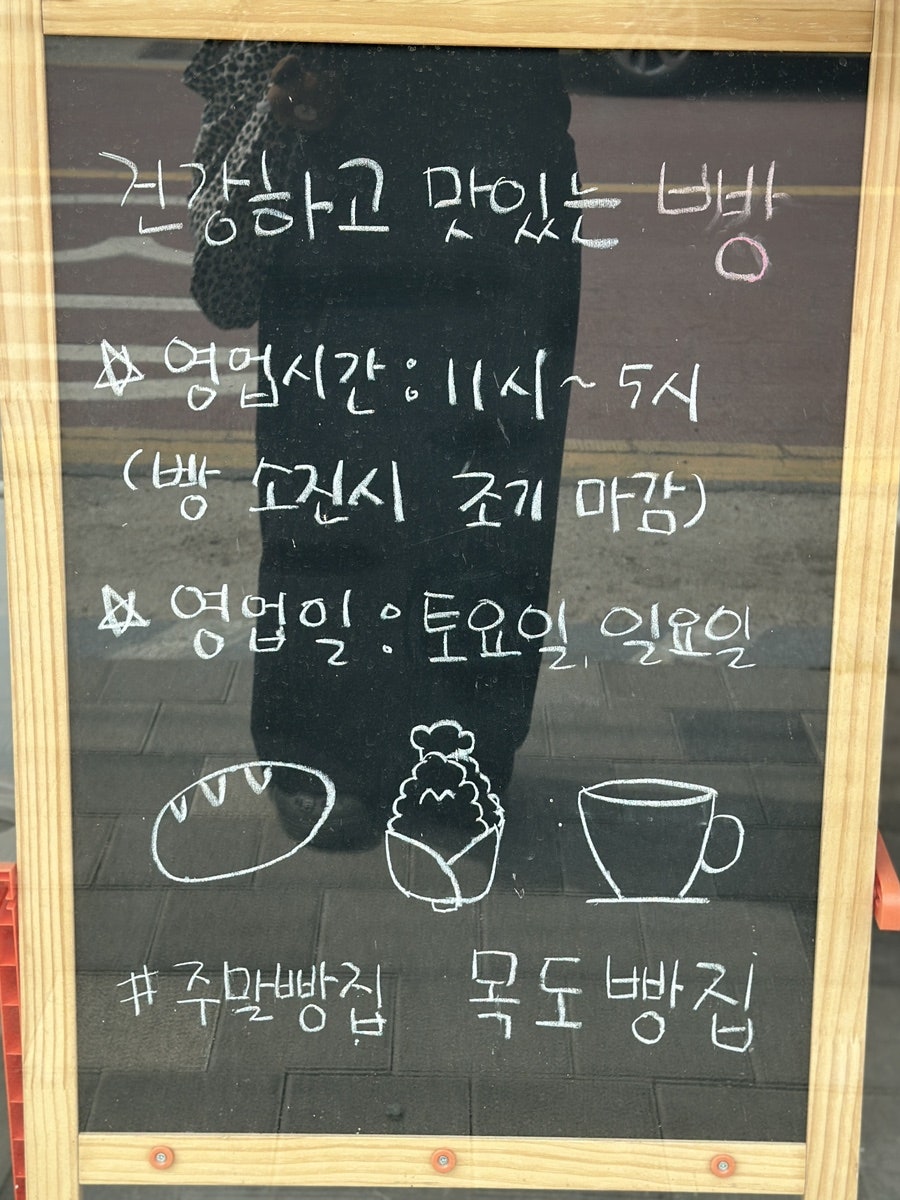 건강하고 맛있는 빵
☆ 영업시간 : 11시 ~ 5시
(빵 소진시 조기 마감)
☆ 영업일 : 토요일, 일요일
#주말빵집 목도빵집